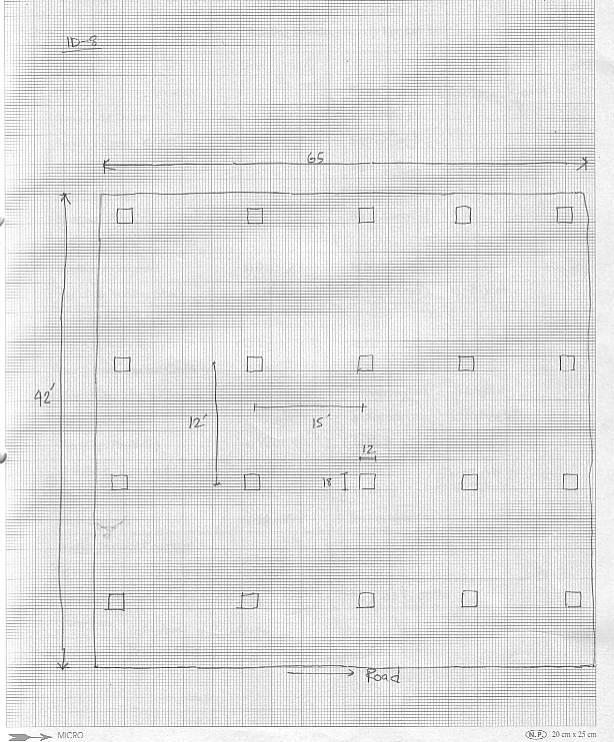 ID-8
65
42'
12'
15'
12
18
Road
MICRO
N.P. 20 cm x 25 cm